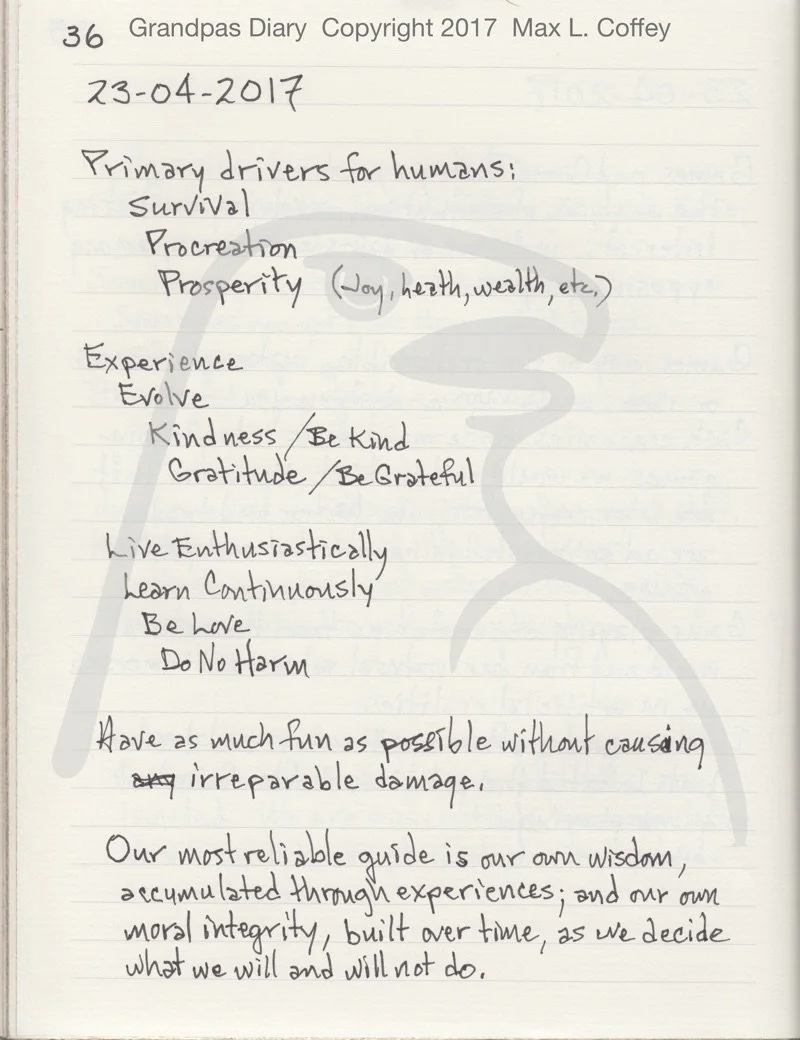 36 Grandpas Diary Copyright 2017 Max L. Coffey
23-04-2017
Primary drivers for humans:
Survival
Procreation
Prosperity (Joy, health, wealth, etc.)
Experience
Evolve
Kindness / Be Kind
Gratitude / Be Grateful
Live Enthusiastically
Learn Continuously
Be Love
Do No Harm
Have as much fun as possible without causing
any irreparable damage.
Our most reliable guide is our own wisdom,
accumulated through experiences; and our own
moral integrity, built over time, as we decide
what we will and will not do.